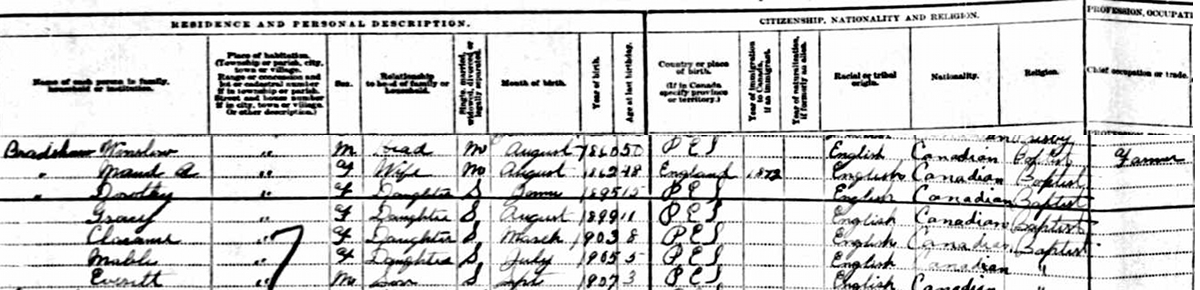 RESIDENCE AND PERSONAL DESCRIPTION.
CITIZENSHIP, NATIONALITY AND RELIGION.
PROFESSION, OCCUPATI
Name of each person in family, household or institution.
Place of habitation. (Township or parish, city, town or village. Range or concession and lot or cadastral number if in township or parish. Street and house number if in city, town or village. Or other description.)
Sex.
Relationship to head of family or household.
Single, married, widowed, divorced or legally separated.
Month of birth.
Year of birth.
Age at last birthday.
Country or place of birth. (If in Canada specify province or territory.)
Year of immigration to Canada, if an immigrant.
Year of naturalization, if formerly an alien.
Racial or tribal origin.
Nationality.
Religion.
Chief occupation or trade.
Bradshaw Winslow " M Head M August 1860 50 P E I English Canadian Baptist Farmer
" Maud A " F Wife M August 1862 48 England 1872 English Canadian Baptist
" Dorothy " F Daughter S 1895 15 P E I English Canadian Baptist
Gracy F Daughter S August 1899 11 P E I English Canadian Baptist
" F Daughter S March 1903 8 P E I English Canadian Baptist
Mable " F Daughter S July 1905 5 P E I English Canadian "
Everett " M Son S Sept 1907 3 P E I English Canadian "